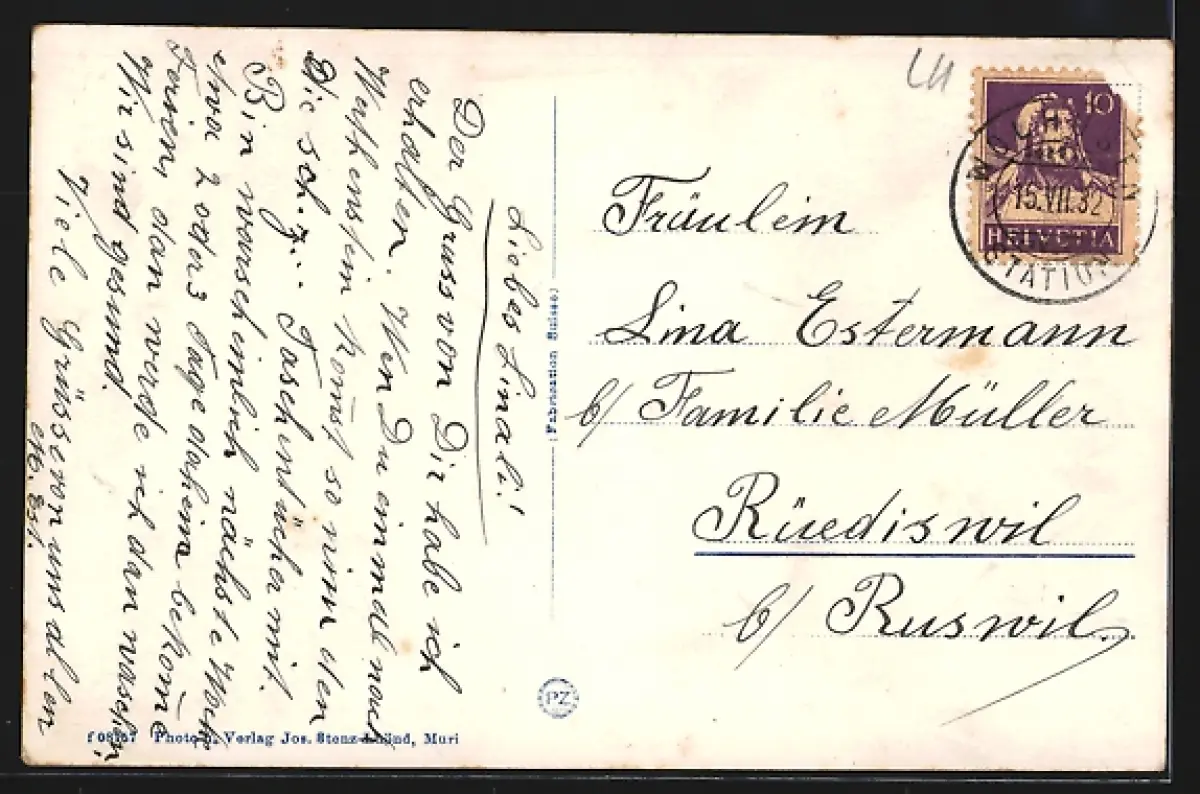 Liebes Linali!
Der Gruss von Dir habe ich
erhalten. Wen Du einmal nach
Wertenstein komst so nim den
Die sch.z... Taschentücher mit.
Bin warscheinlich nächste Woche
etwa 2 oder 3 Tage daheim bekome
Ferien dan werde ich dan waschen,
Wir sind gesund.
Viele Grüsse von uns allen
Est.
(Fabrication Suisse)
LU
10
HELVETIA
15.VII.32
STATION
Fräulein
Lina Estermann
b/ Familie Müller
Rüediswil
b/ Ruswil.
PZ
Photo u. Verlag Jos. Muri